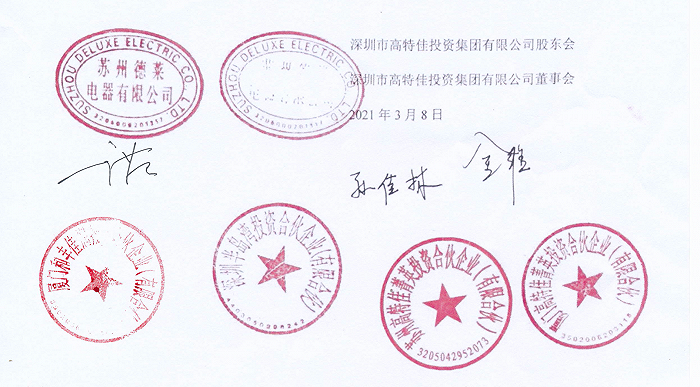 深圳市高特佳投资集团有限公司股东会
深圳市高特佳投资集团有限公司董事会
2021 年 3 月 8 日
SUZHOU DELUXE ELECTRIC CO., LTD
苏州德莱
电器有限公司
3205000201317
SUZHOU DELUXE ELECTRIC CO., LTD
电器有限公司
孙佳林
金雅
厦门和丰佳润投资合伙企业(有限合伙)
深圳半岛湾投资合伙企业(有限合伙)
苏州高特佳菁英投资合伙企业(有限合伙)
3205042952073
厦门高特佳菁英投资合伙企业(有限合伙)